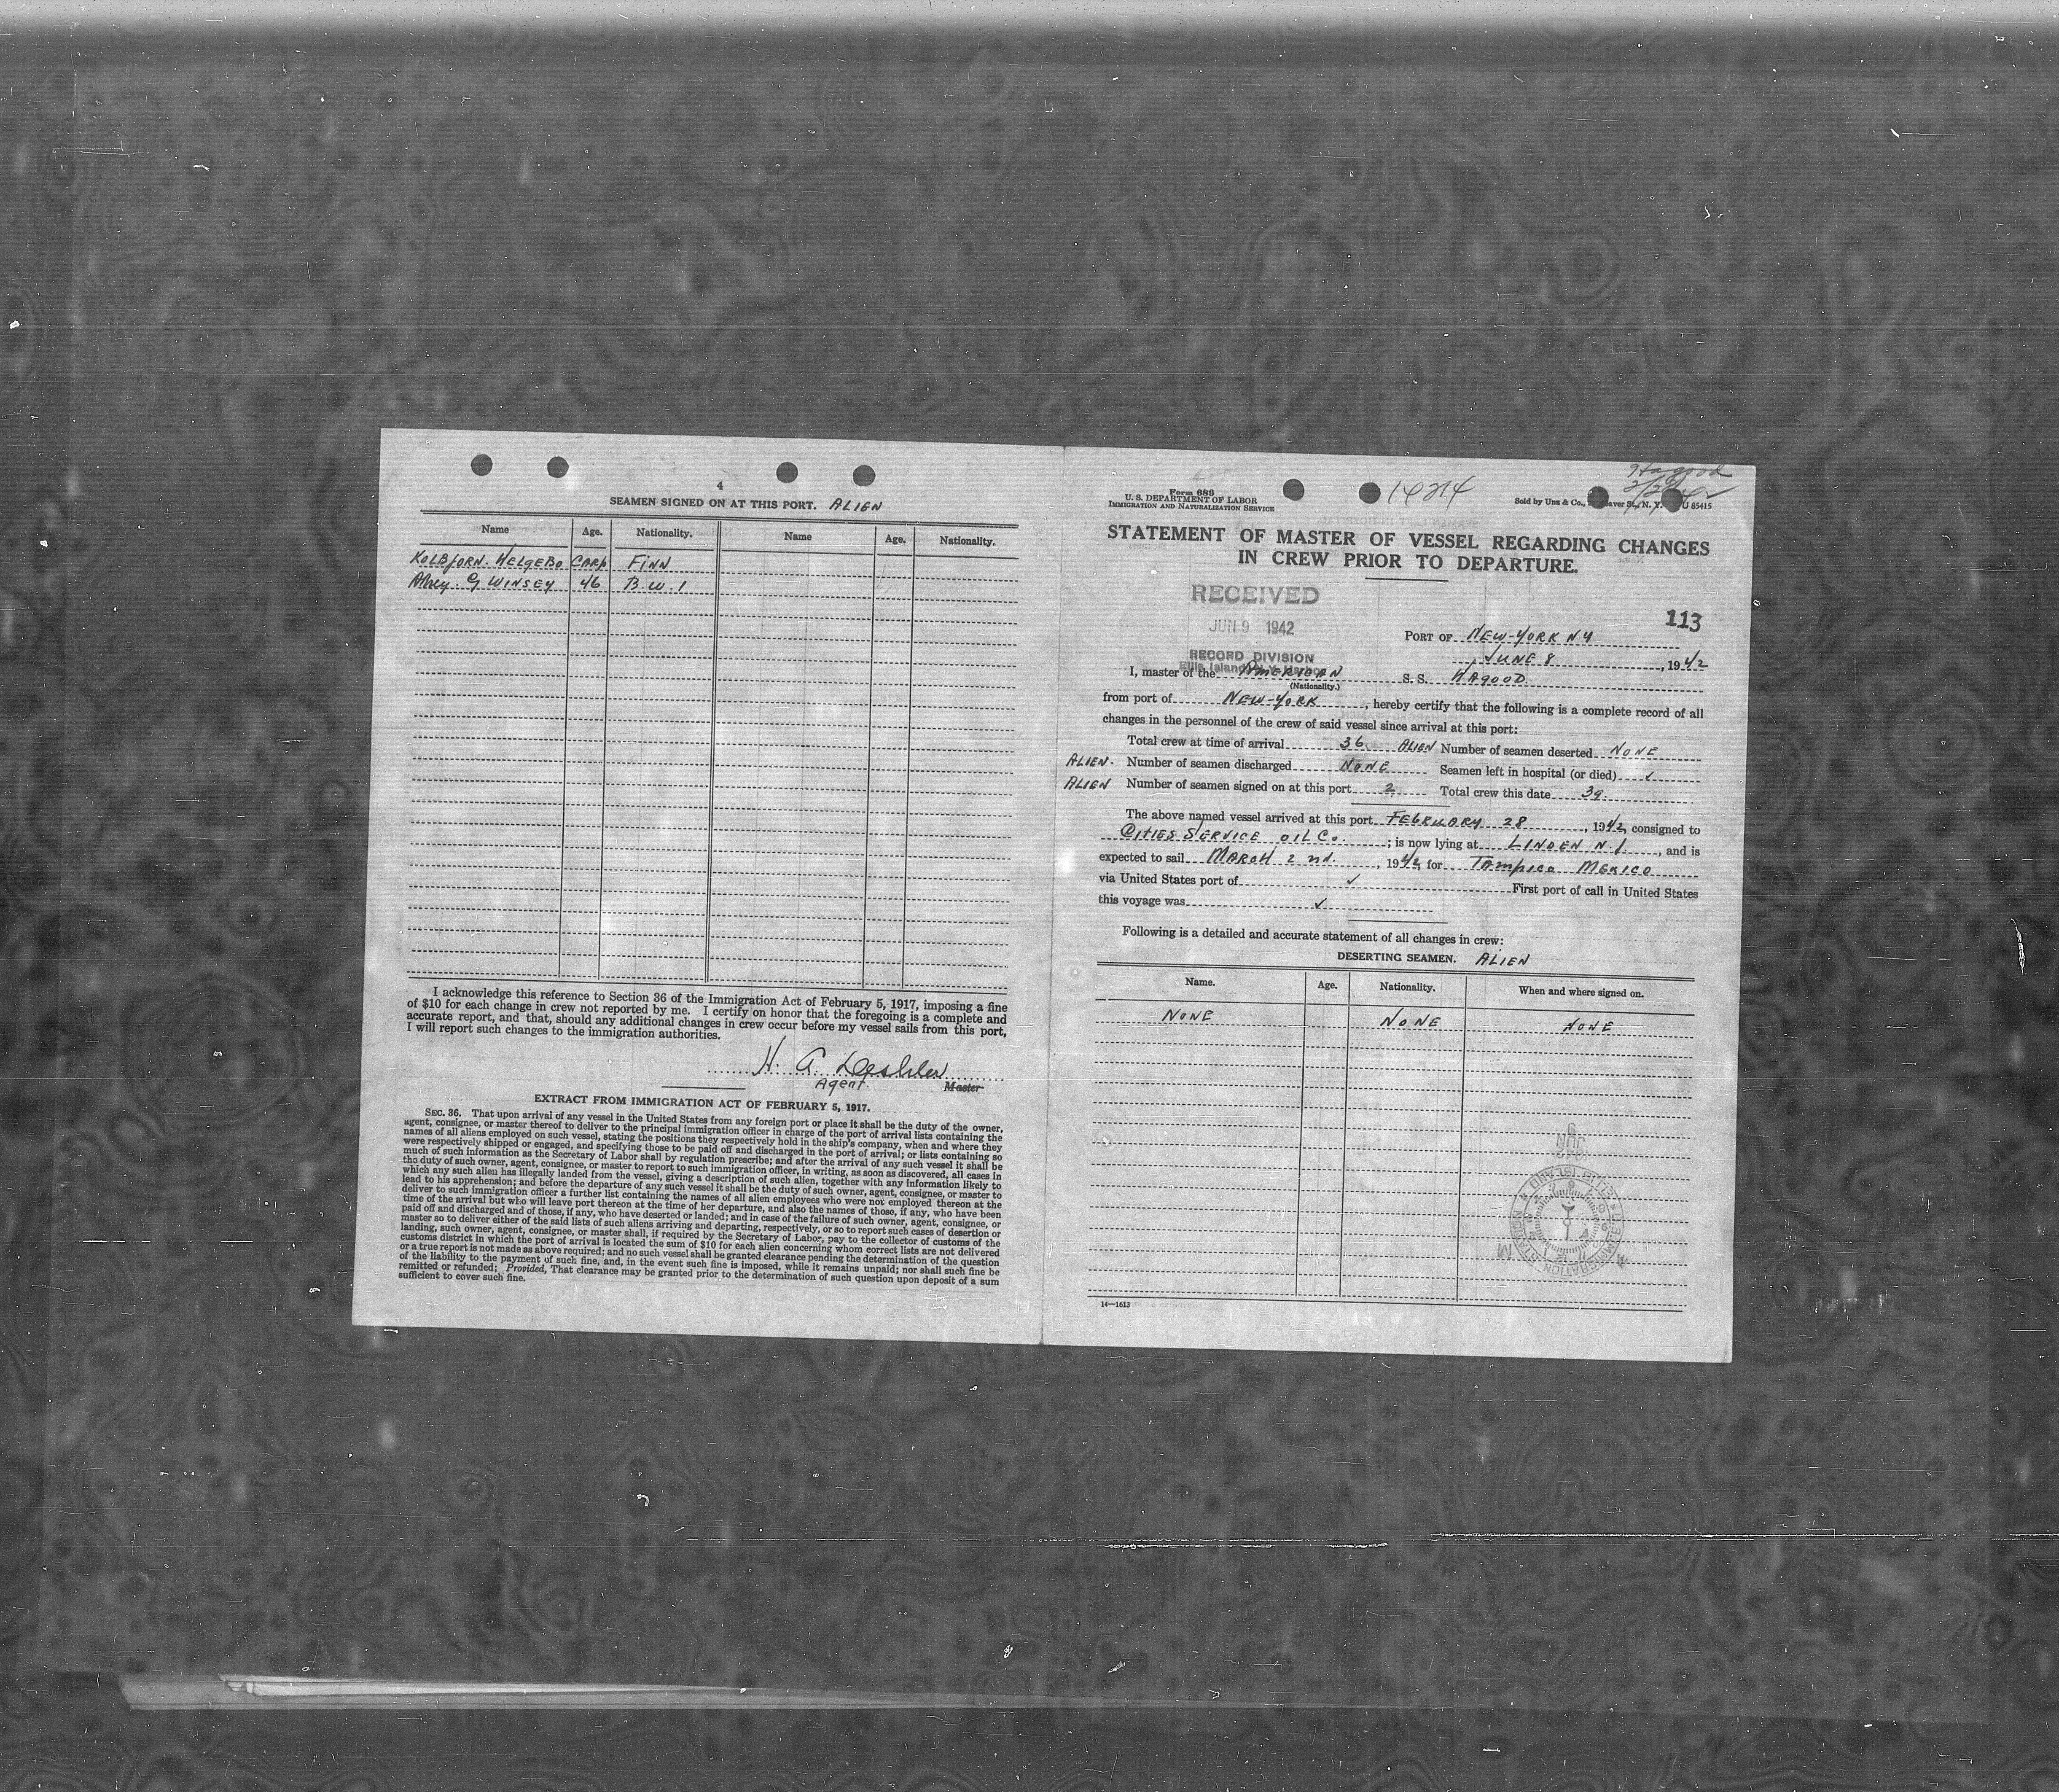 4
SEAMEN SIGNED ON AT THIS PORT. ALIEN
Name Age. Nationality. Name Age. Nationality.
KOLBJORN. HELGEBO CARP FINN
G WINSEY 46 B.W.I
I acknowledge this reference to Section 36 of the Immigration Act of February 5, 1917, imposing a fine
of $10 for each change in crew not reported by me. I certify on honor that the foregoing is a complete and
accurate report, and that, should any additional changes in crew occur before my vessel sails from this port,
I will report such changes to the immigration authorities.
H. A. Deshler
Agent Master
EXTRACT FROM IMMIGRATION ACT OF FEBRUARY 5, 1917.
SEC. 36. That upon arrival of any vessel in the United States from any foreign port or place it shall be the duty of the owner,
agent, consignee, or master thereof to deliver to the principal immigration officer in charge of the port of arrival lists containing the
names of all aliens employed on such vessel, stating the positions they respectively hold in the ship's company, when and where they
were respectively shipped or engaged, and specifying those to be paid off and discharged in the port of arrival; or lists containing so
much of such information as the Secretary of Labor shall by regulation prescribe; and after the arrival of any such vessel it shall be
the duty of such owner, agent, consignee, or master to report to such immigration officer, in writing, as soon as discovered, all cases in
which any such alien has illegally landed from the vessel, giving a description of such alien, together with any information likely to
lead to his apprehension; and before the departure of any such vessel it shall be the duty of such owner, agent, consignee, or master to
deliver to such immigration officer a further list containing the names of all alien employees who were not employed thereon at the
time of the arrival but who will leave port thereon at the time of her departure, and also the names of those, if any, who have been
paid off and discharged and of those, if any, who have deserted or landed; and in case of the failure of such owner, agent, consignee, or
master so to deliver either of the said lists of such aliens arriving and departing, respectively, or so to report such cases of desertion or
landing, such owner, agent, consignee, or master shall, if required by the Secretary of Labor, pay to the collector of customs of the
customs district in which the port of arrival is located the sum of $10 for each alien concerning whom correct lists are not delivered
or a true report is not made as above required; and no such vessel shall be granted clearance pending the determination of the question
of the liability to the payment of such fine, and, in the event such fine is imposed, while it remains unpaid; nor shall such fine be
remitted or refunded; Provided, That clearance may be granted prior to the determination of such question upon deposit of a sum
sufficient to cover such fine.
Hagood
Form 686
U. S. DEPARTMENT OF LABOR
IMMIGRATION AND NATURALIZATION SERVICE
14214
Sold by Unz & Co., St., N. Y. U 85415
STATEMENT OF MASTER OF VESSEL REGARDING CHANGES
IN CREW PRIOR TO DEPARTURE.
RECEIVED
JUN 9 1942
RECORD DIVISION
Ellis Island, N.Y. Harbor
113
PORT OF NEW-YORK NY
JUNE 8, 1942
I, master of the AMERICAN S. S. HAGOOD
(Nationality.)
from port of NEW-YORK, hereby certify that the following is a complete record of all
changes in the personnel of the crew of said vessel since arrival at this port:
Total crew at time of arrival 36 ALIEN Number of seamen deserted NONE
ALIEN. Number of seamen discharged NONE Seamen left in hospital (or died) ✓
ALIEN Number of seamen signed on at this port 2 Total crew this date 39.
The above named vessel arrived at this port FEBRUARY 28, 1942, consigned to
CITIES SERVICE OIL Co.; is now lying at LINDEN N.J, and is
expected to sail MARCH 2nd., 1942, for TAMPICO MEXICO
via United States port of ✓ First port of call in United States
this voyage was ✓
Following is a detailed and accurate statement of all changes in crew:
DESERTING SEAMEN. ALIEN
Name. Age. Nationality. When and where signed on.
NONE NONE NONE
14—1613